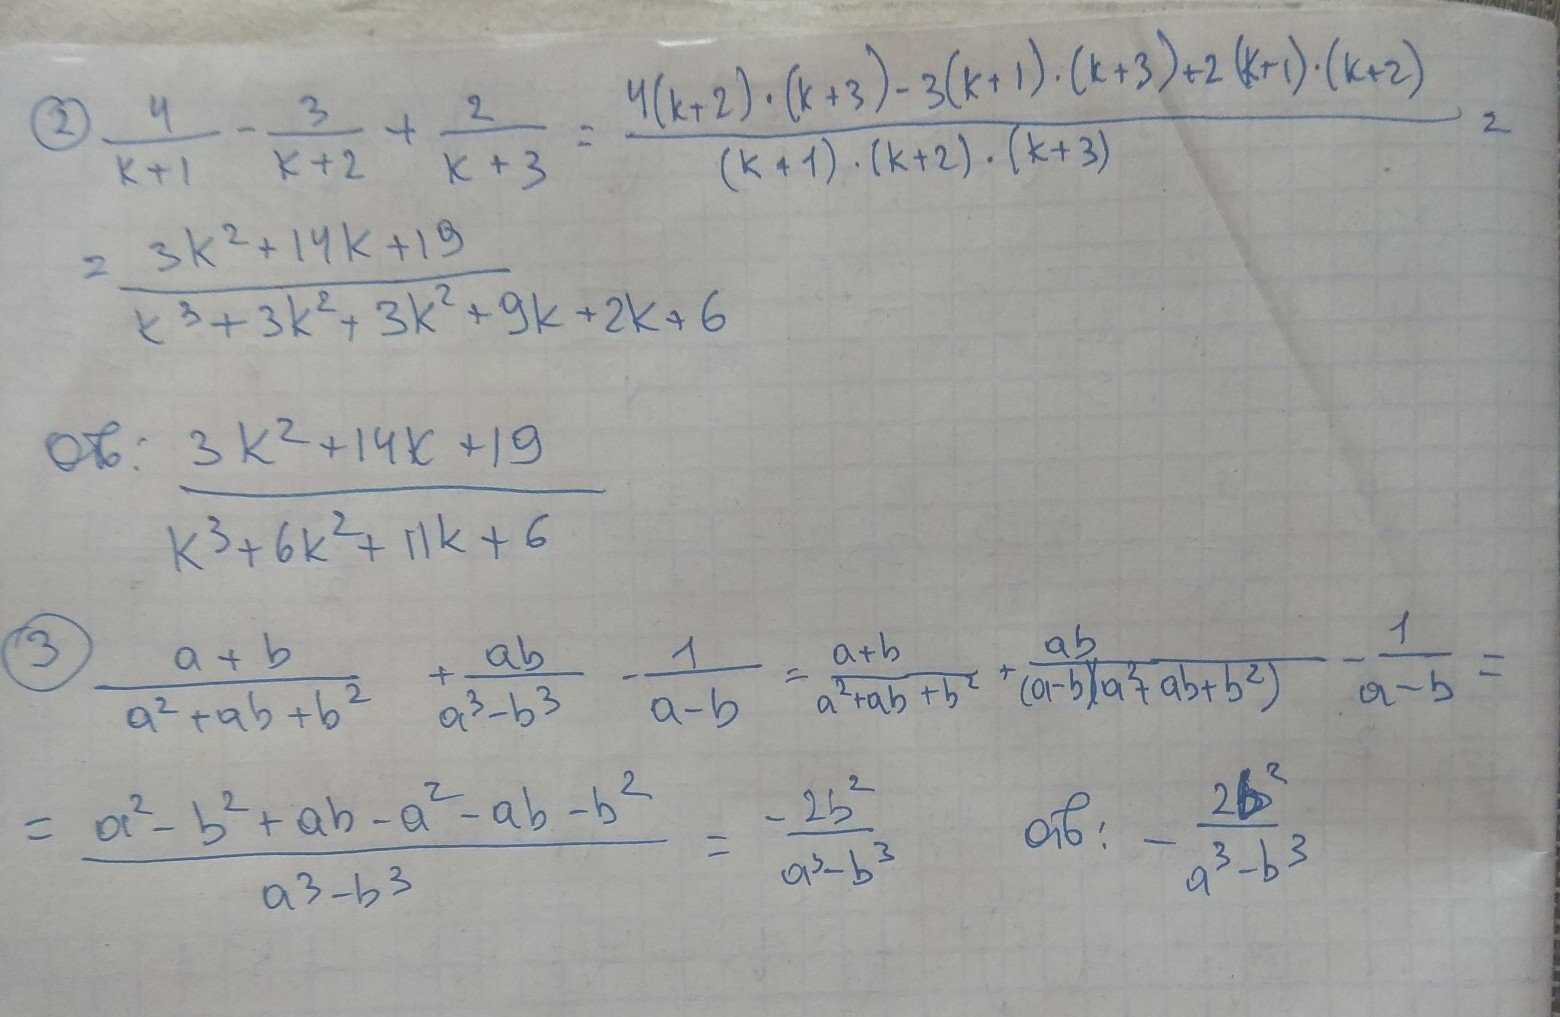 ② 4/(k+1) - 3/(k+2) + 2/(k+3) = (4(k+2)·(k+3)-3(k+1)·(k+3)+2(k+1)·(k+2))/((k+1)·(k+2)·(k+3)) =
= (3k²+14k+19)/(k³+3k²+3k²+9k+2k+6)
Отв: (3k²+14k+19)/(k³+6k²+11k+6)
③ (a+b)/(a²+ab+b²) + ab/(a³-b³) - 1/(a-b) = (a+b)/(a²+ab+b²) + ab/((a-b)(a²+ab+b²)) - 1/(a-b) =
= (a²-b²+ab-a²-ab-b²)/(a³-b³) = -2b²/(a³-b³) Отв: - 2b²/(a³-b³)